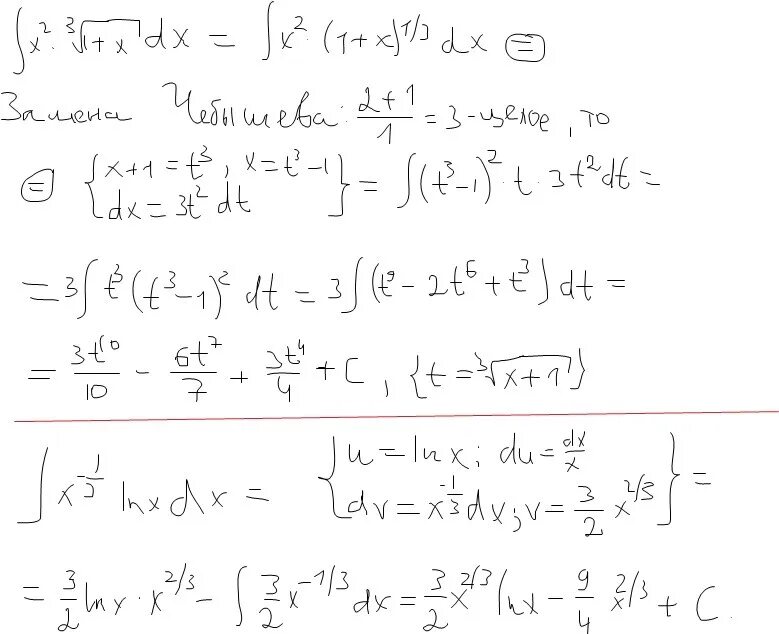 ∫x²·∛(1+x) dx = ∫x²·(1+x)^(1/3) dx ⊜
Замена Чебышева: (2+1)/1 = 3-целое, то
⊜ {x+1=t³, x=t³-1; dx=3t² dt} = ∫(t³-1)²·t·3t² dt =
= 3∫t³(t³-1)² dt = 3∫(t⁹-2t⁶+t³)dt =
= 3t¹⁰/10 - 6t⁷/7 + 3t⁴/4 + C, {t=∛(x+1)}
∫x^(-1/3) lnx dx = {u=lnx; du=dx/x; dv=x^(-1/3)dx; v=3/2 x^(2/3)} =
= 3/2 lnx·x^(2/3) - ∫3/2 x^(-1/3) dx = 3/2 x^(2/3) lnx - 9/4 x^(2/3) + C.